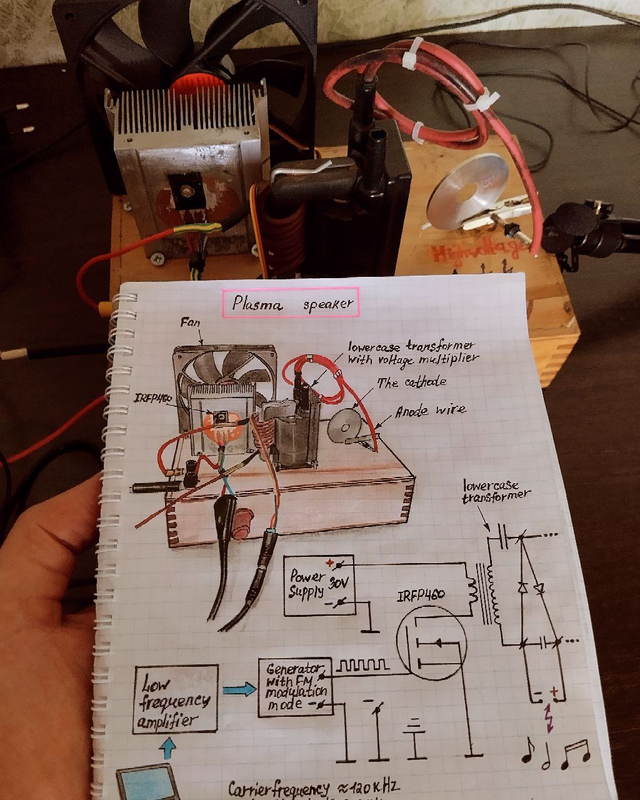 Highvoltage
Plasma speaker
Fan
lowercase transformer
with voltage multiplier
IRFP460
The cathode
Anode wire
lowercase
transformer
+
Power
Supply 30V
-
IRFP460
Generator
with FM
modulation
mode
-
Low
frequency
amplifier
-
- +
Carrier frequency ≈120KHz